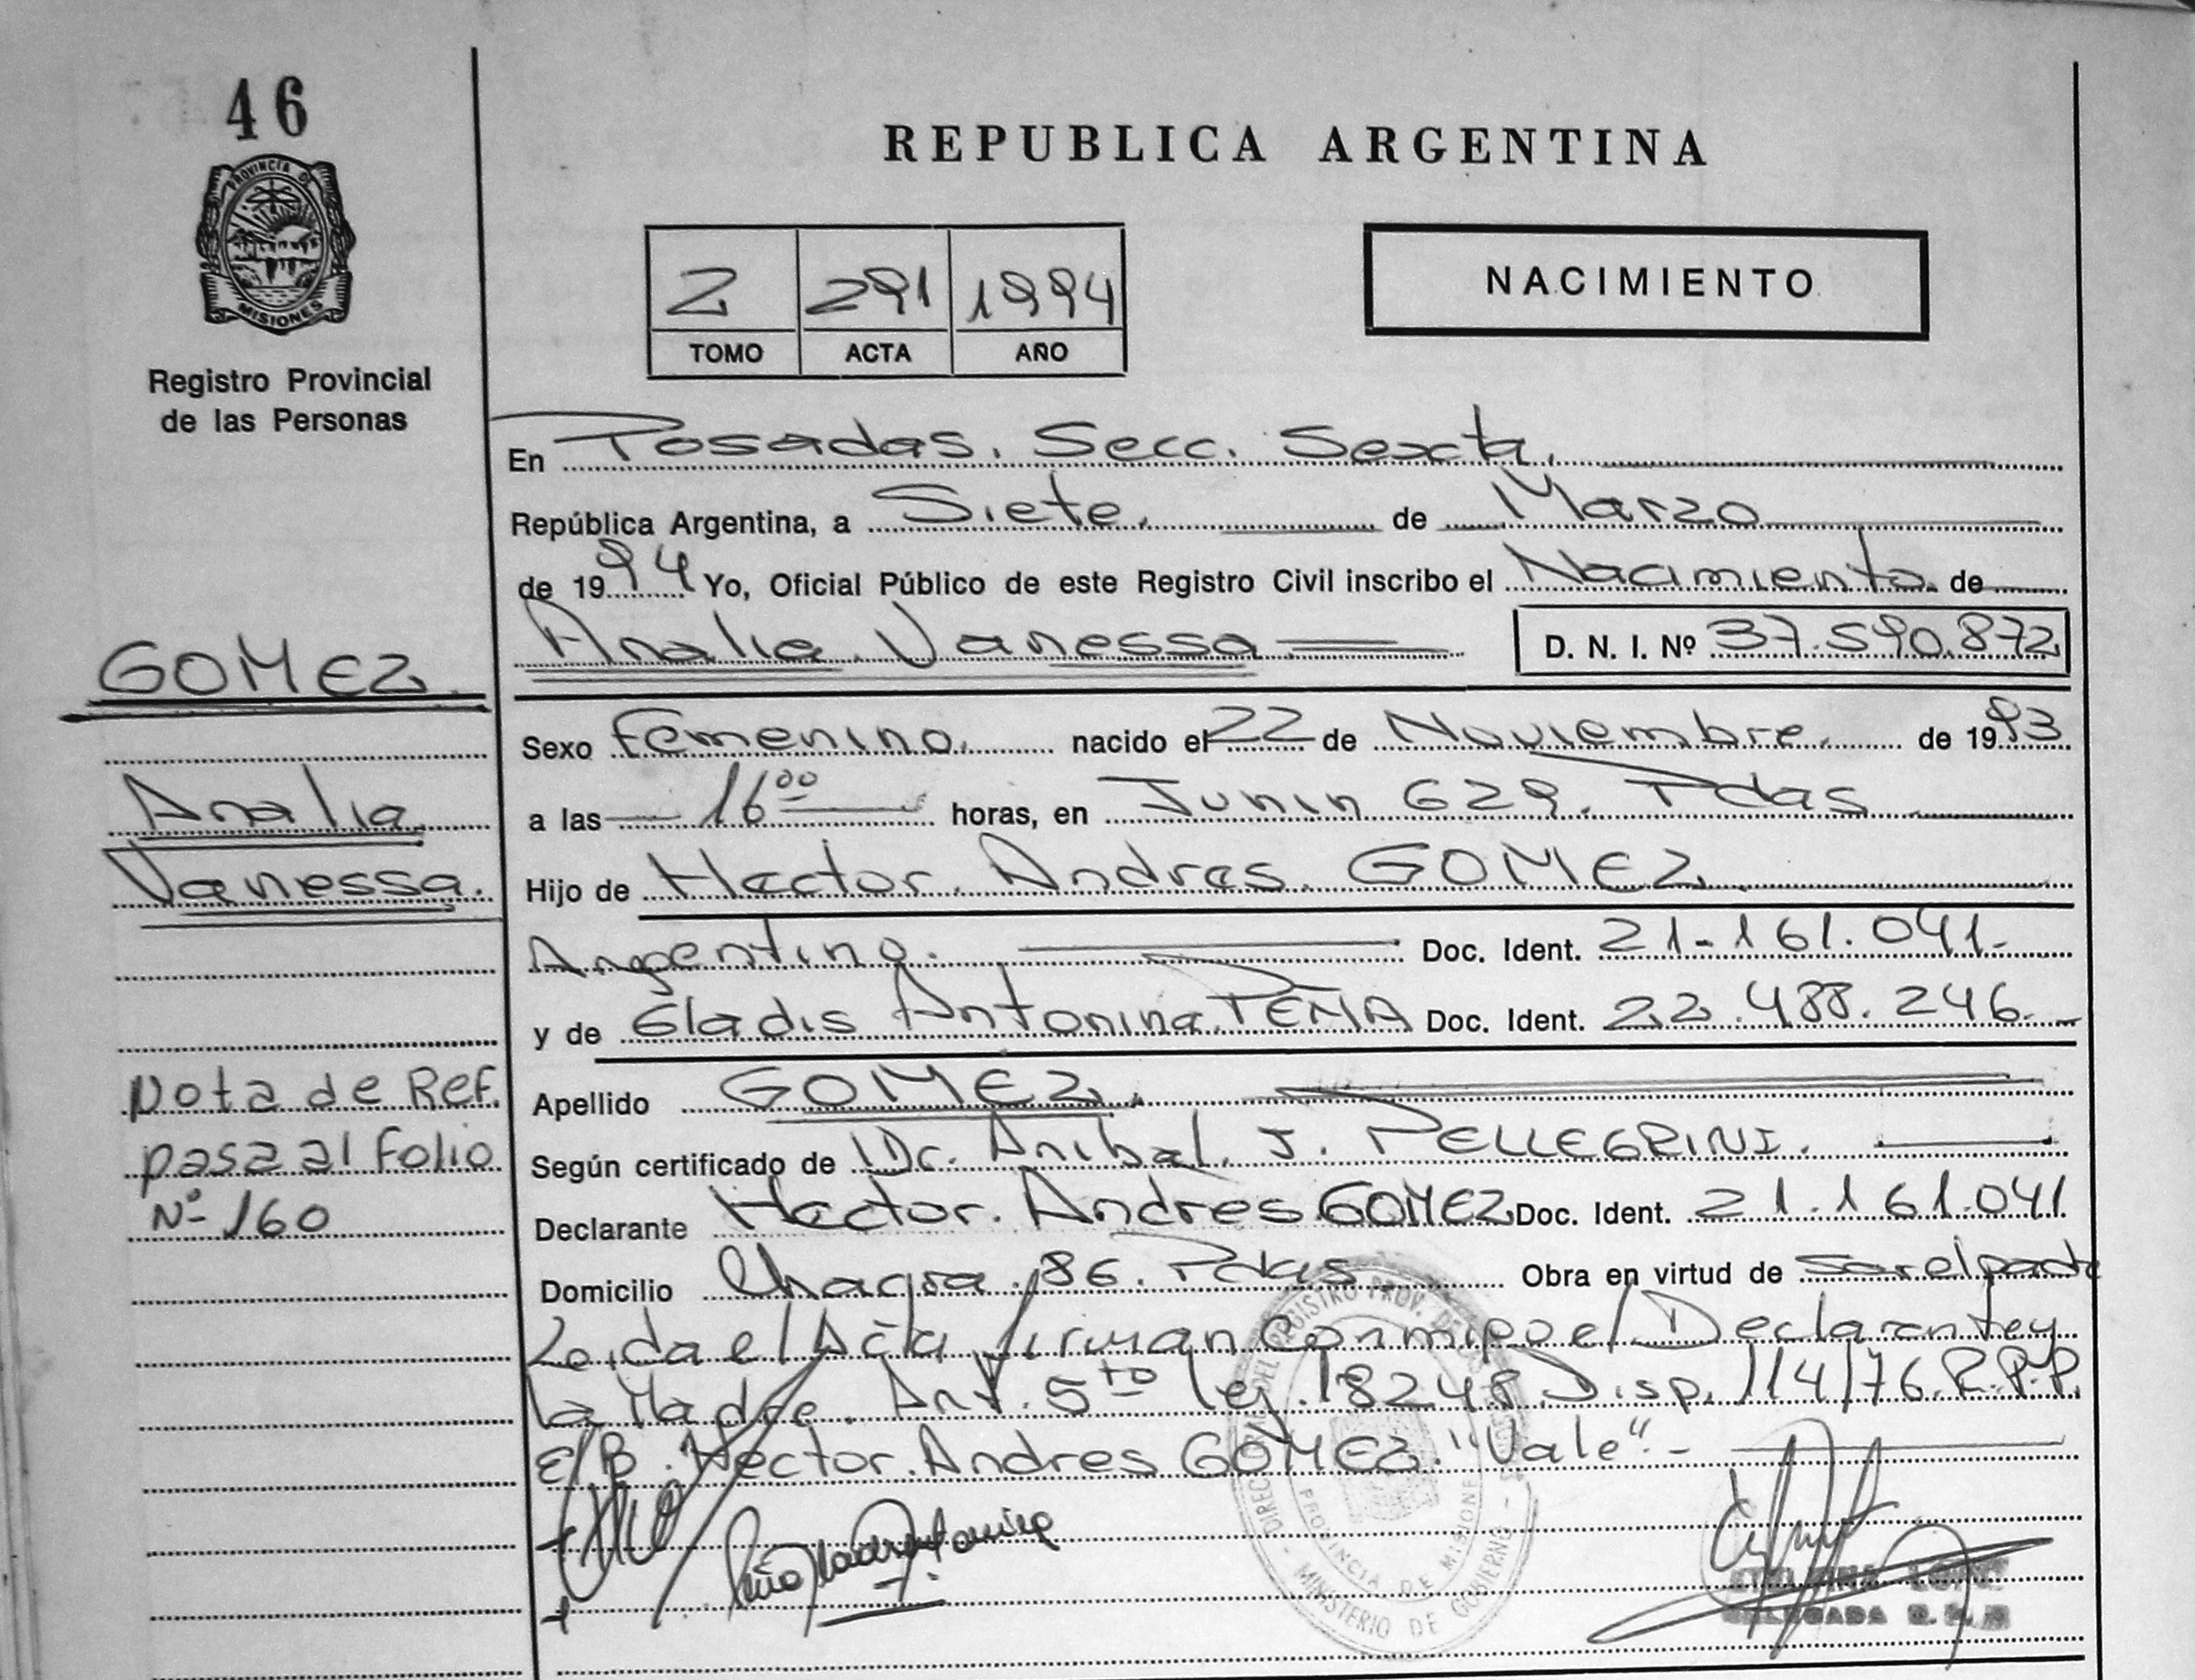 46
PROVINCIA DE
MISIONES
Registro Provincial
de las Personas
REPUBLICA ARGENTINA
2 291 1994
TOMO ACTA AÑO
NACIMIENTO
En Posadas. Secc. Sexta.
República Argentina, a Siete. de Marzo
de 1994 Yo, Oficial Público de este Registro Civil inscribo el Nacimiento de
Analia Vanessa D. N. I. Nº 37.590.872
GOMEZ
Analia
Vanessa.
Sexo Femenino. nacido el 22 de Noviembre. de 1993
a las 16 00 horas, en Junin 629. Pdas
Hijo de Hector. Andres. GOMEZ
Argentino. Doc. Ident. 21-161.041.-
y de Gladis Antonina PEÑA Doc. Ident. 22.488.246.-
Apellido GOMEZ.
Según certificado de Dr. Anibal. J. PELLEGRINI.
Declarante Hector. Andres GOMEZ Doc. Ident. 21.161.041
Domicilio Chacra. 86. Pdas Obra en virtud de
Leida el Acta firman conmigo el Declarante y
la Madre. Art. 5to ley. 18248 Disp. 114/76.R.P.P.
E/B. Hector. Andres GOMEZ. "Vale".-
Nota de Ref.
pasa al Folio
Nº 160
DEL REGISTRO PROV. DE
PROVINCIA DE MISIONES
MINISTERIO DE GOBIERNO
DELEGADA